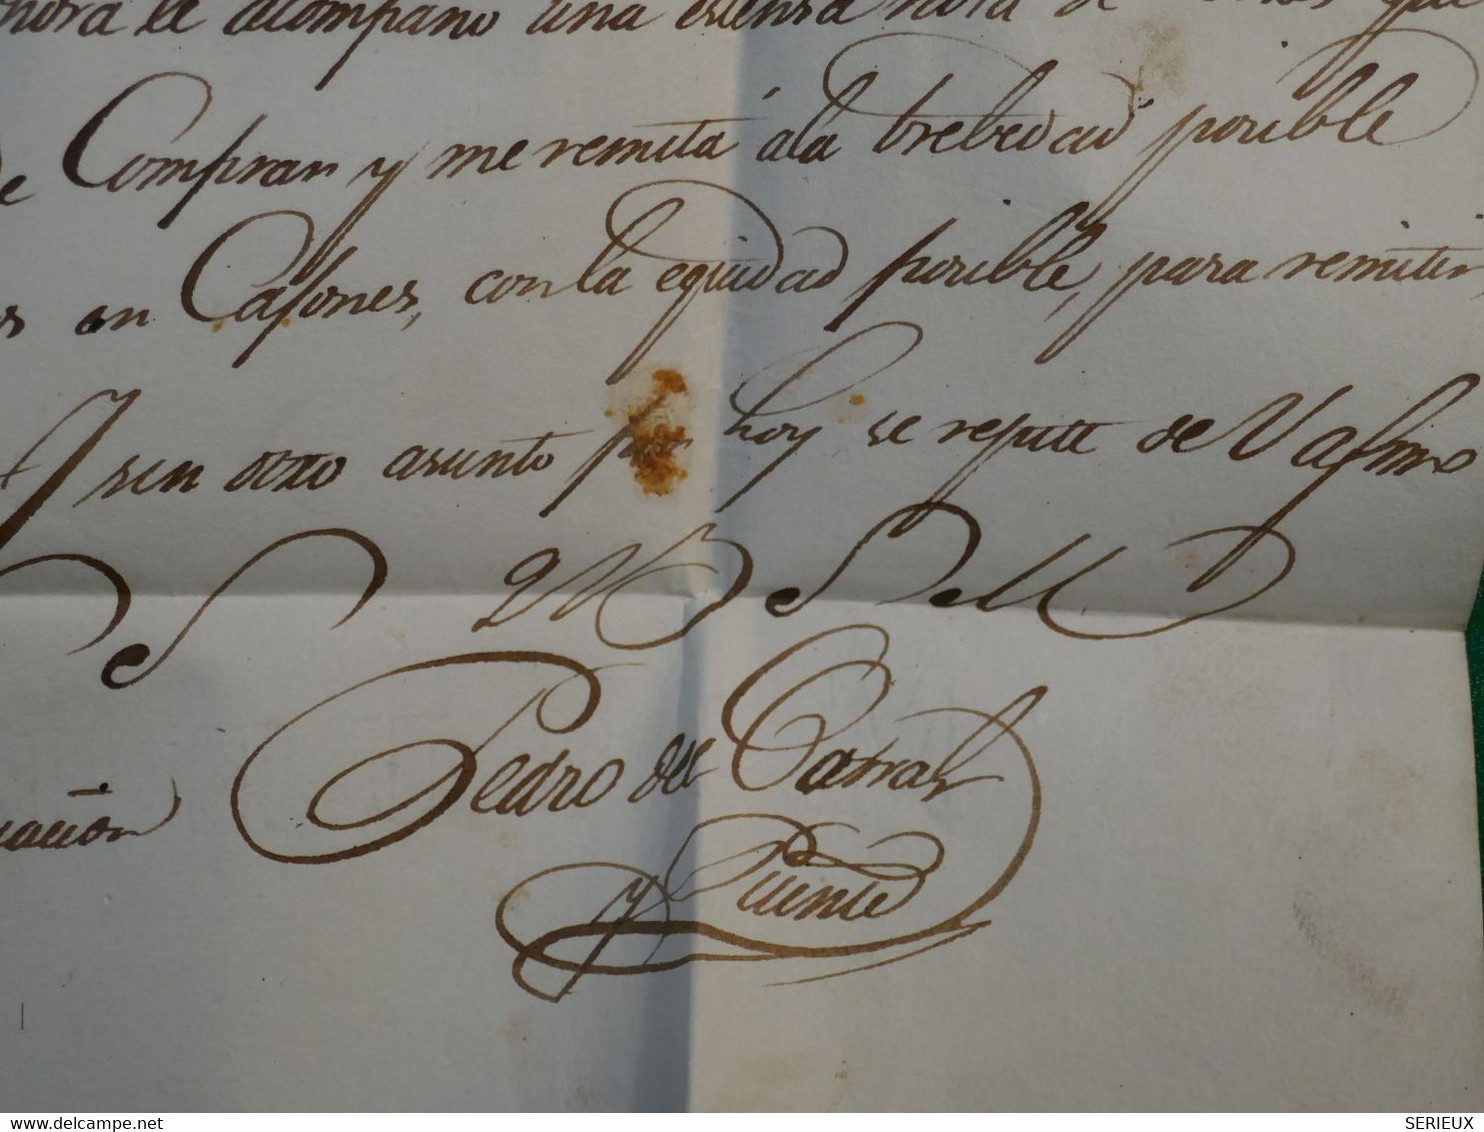 hora le acompaño una estensa nota de que
de Compran y me remita á la brebedad posible
en Cajones, con la equidad posible, para remitir
Y sin otro asunto por hoy se repite de V afmo
S
Q B S M
Pedro del Corral
y Puente
SERIEUX